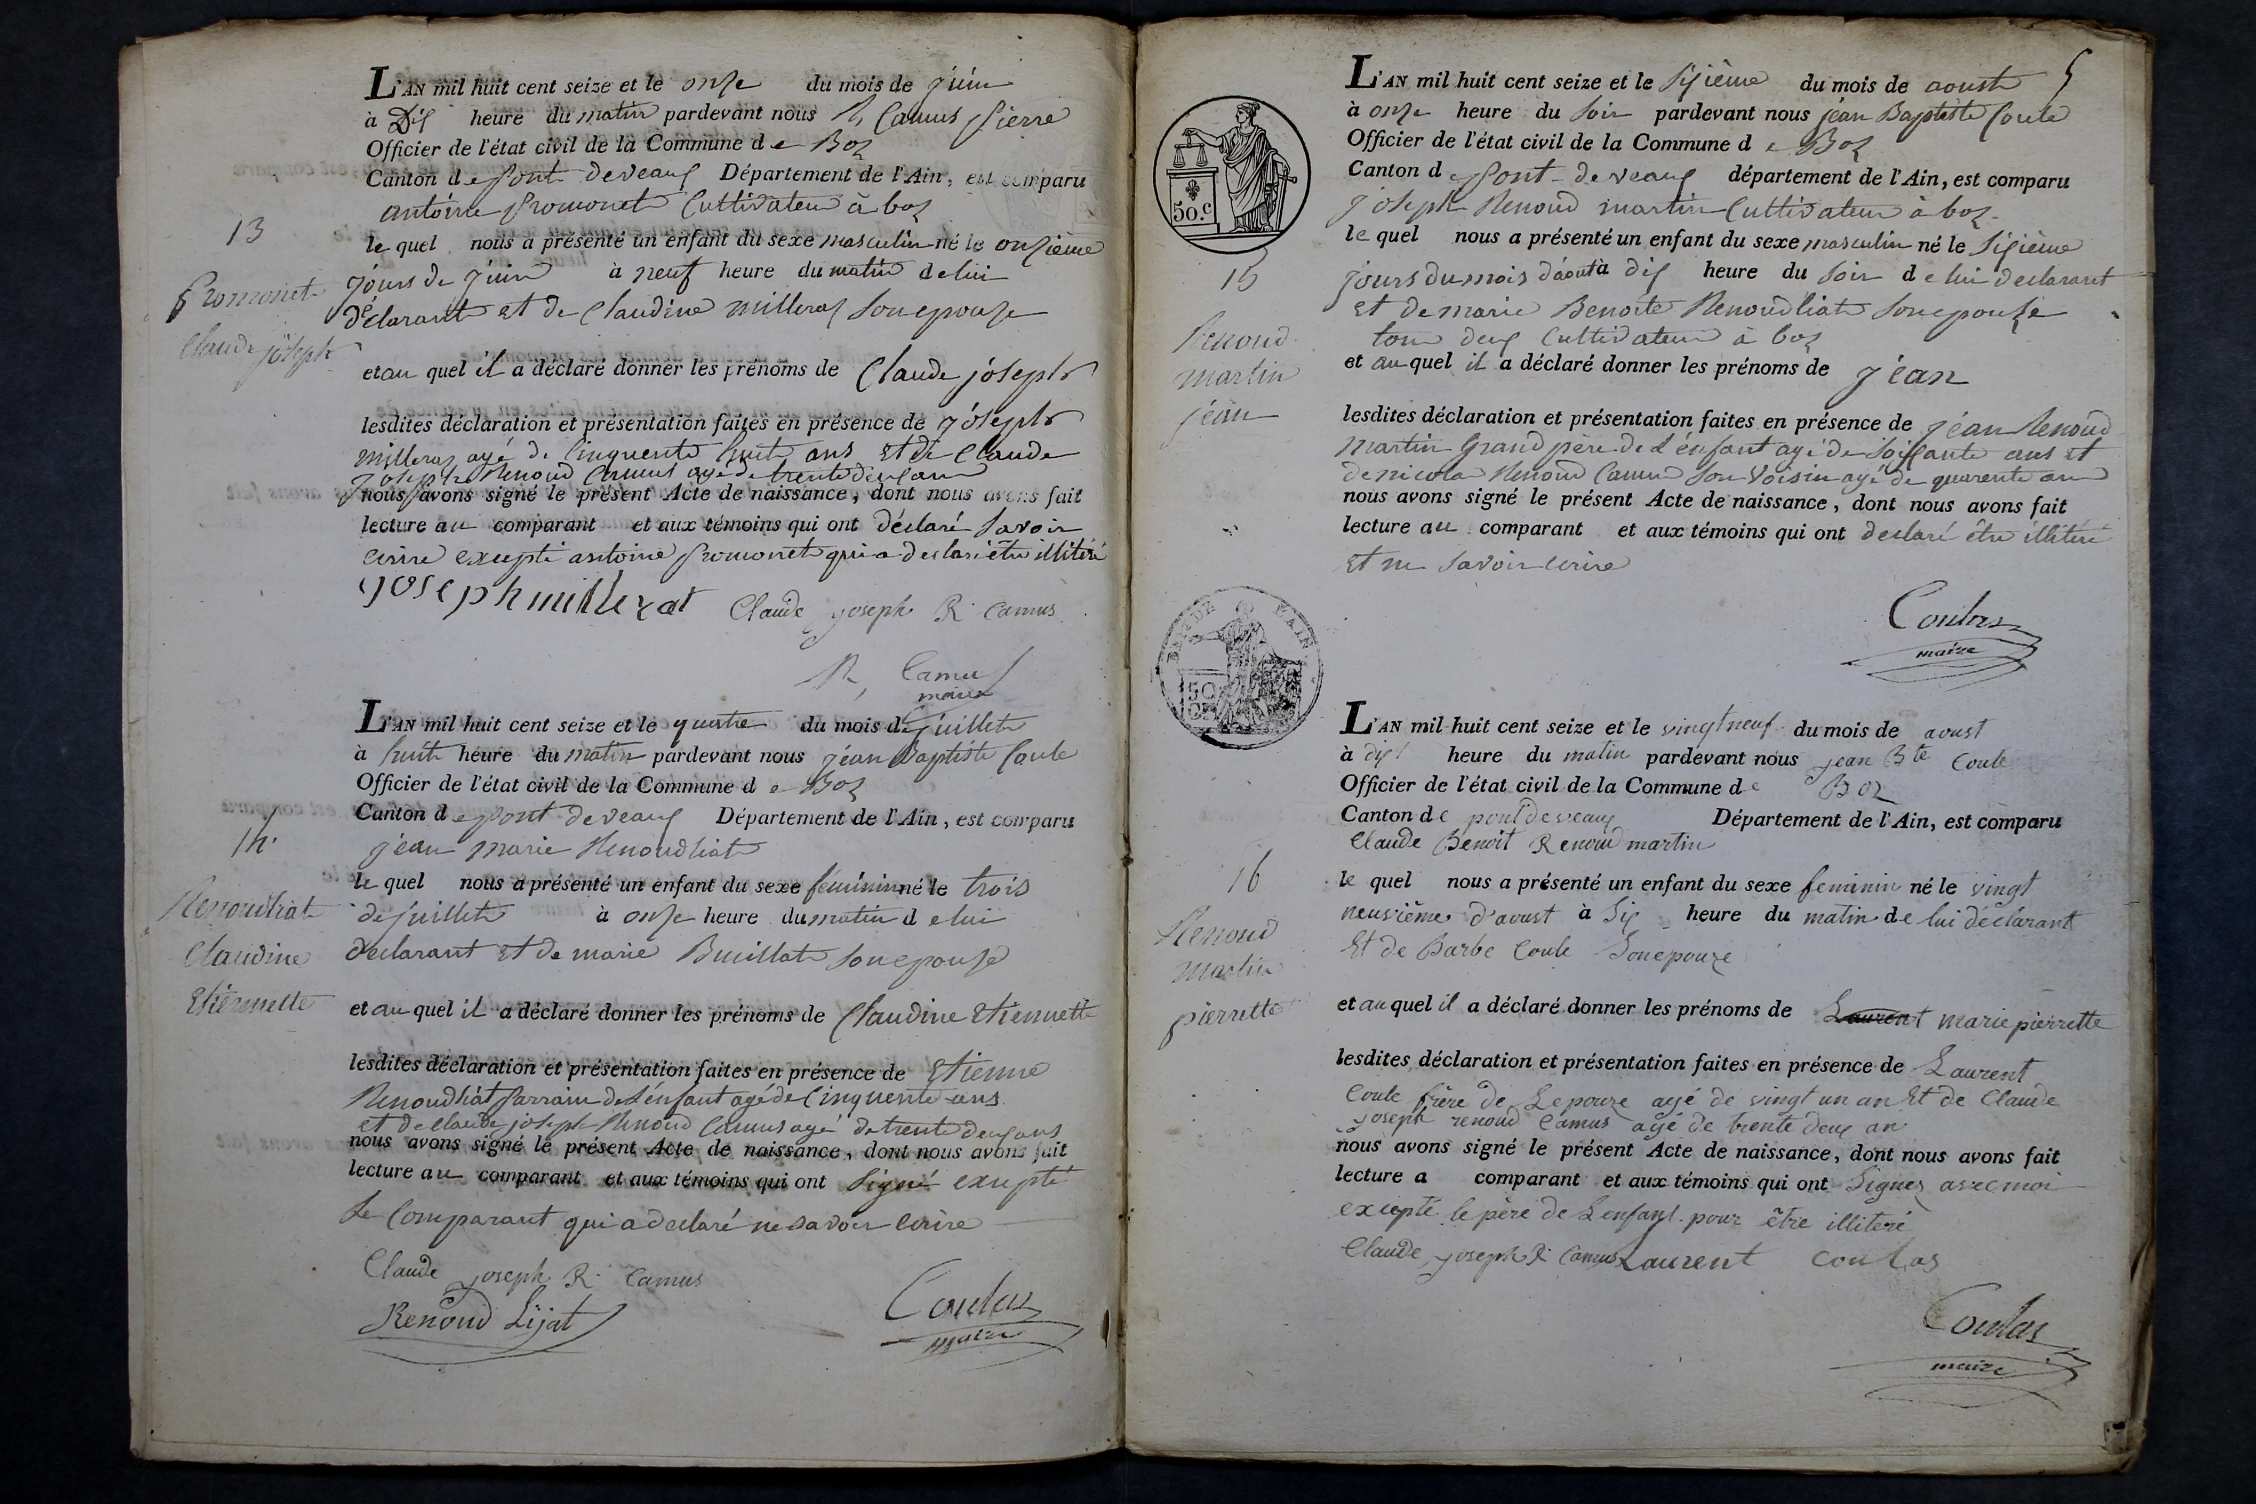 L'AN mil huit cent seize et le onze du mois de juin
à Dix heure du matin pardevant nous R, Camus pierre
Officier de l'état civil de la Commune de Boz
Canton de pont deveaux Département de l'Ain, est comparu
antoine promonet Cultivateur à boz
le quel nous a présenté un enfant du sexe masculin né le onzième
jours de juin à neuf heure du matin de lui
déclarant et de Claudine milleraz son epouze
et au quel il a déclaré donner les prénoms de Claude jóseph
lesdites déclaration et présentation faites en présence de jóseph
milleraz agé de Cinquente huit ans et de Claude
joseph Renoud Camus agé de trente deux ans
nous avons signé le présent Acte de naissance, dont nous avons fait
lecture au comparant et aux témoins qui ont déclaré savoir
ecrire excepté antoine promonet qui a declaré être illitéré
joseph millerat Claude joseph R. Camus
R, Camus
maire
13
promonet
Claude jóseph
L'AN mil huit cent seize et le quatre du mois de juillet
à huit heure du matin pardevant nous jéan Baptiste Coula
Officier de l'état civil de la Commune de Boz
Canton de pont deveaux Département de l'Ain, est comparu
jéan marie Renoudliat
le quel nous a présenté un enfant du sexe féminin né le trois
de juillet à onze heure du matin de lui
declarant et de marie Buillat son epouse
et au quel il a déclaré donner les prénoms de Claudine Etiennette
lesdites déclaration et présentation faites en présence de Etienne
Renoudliat parrain de l'énfant agé de Cinquente ans
et de claude joseph Renoud Camus agé de trente deux ans
nous avons signé le présent Acte de naissance, dont nous avons fait
lecture au comparant et aux témoins qui ont signé excepté
le Comparant qui a declaré ne savoir ecrire
Claude joseph R. Camus
Renoud Lijat Coulas
maire
14.
Renoudliat
Claudine
Etiennette
5
L'AN mil huit cent seize et le sixième du mois de aoust
à onze heure du soir pardevant nous jéan Baptiste Coula
Officier de l'état civil de la Commune de Boz
Canton de pont-deveaux département de l'Ain, est comparu
joseph Renoud martin Cultivateur à boz
le quel nous a présenté un enfant du sexe masculin né le sixième
jours du mois d'août à dix heure du soir de lui declarant
et de marie Benoite Renoudliat son epouse
tous deux Cultivateur à boz
et au quel il a déclaré donner les prénoms de jéan
lesdites déclaration et présentation faites en présence de jéan Renoud
martin Grand père de l'énfant agé de soixante ans et
de nicola Renoud Camus son voisin agé de quarente ans
nous avons signé le présent Acte de naissance, dont nous avons fait
lecture au comparant et aux témoins qui ont declaré être illitéré
et ne savoir ecrire
Coulas
maire
50.c
15
Renoud
martin
jéan
L'AN mil huit cent seize et le vingt neuf du mois de aoust
à dix heure du matin pardevant nous jean Bte Coula
Officier de l'état civil de la Commune de Boz
Canton de pont deveaux Département de l'Ain, est comparu
Claude Benoit Renoud martin
le quel nous a présenté un enfant du sexe feminin né le vingt
neuvième d'aoust à six heure du matin de lui déclarant
Et de Barbe Coula Son epouze
et au quel il a déclaré donner les prénoms de Laurent marie pierrette
lesdites déclaration et présentation faites en présence de Laurent
Coula frère de Lepouze agé de vingt un an Et de Claude
joseph renoud Camus agé de trente deux an
nous avons signé le présent Acte de naissance, dont nous avons fait
lecture a comparant et aux témoins qui ont Signez avec moi
excepté le père de Lenfant pour être illiteré
Claude joseph R. Camus Laurent coulas
Coulas
maire
16
Renoud
martin
pierrette